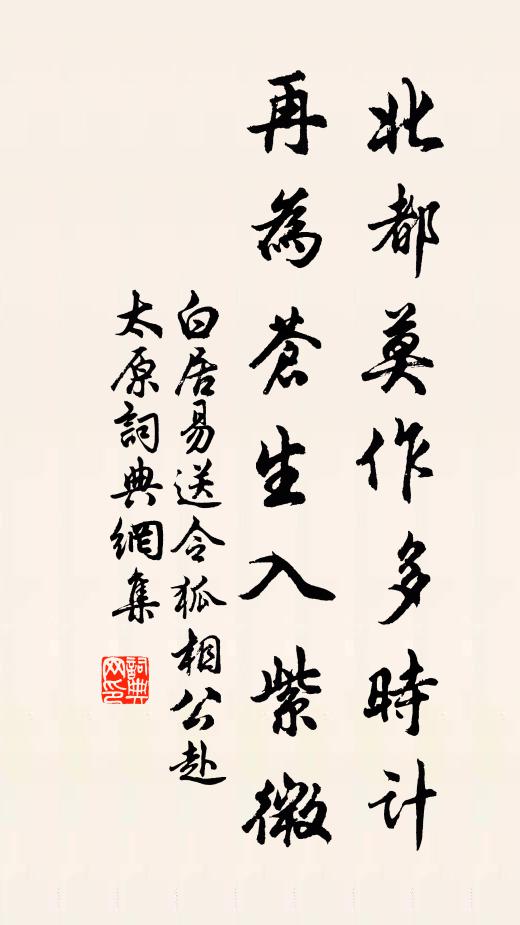 北都莫作多時計
再為蒼生入紫微
白居易送令狐相公赴
太原詞典網集
詞典網印